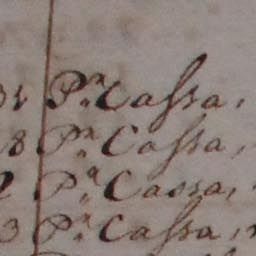 31 P.ª Cassa,
8 P.ª Cassa,
2 P.ª Cassa,
3 P.ª Cassa,